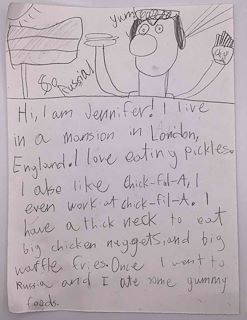 yum!
Russia!
Hi, I am Jennifer! I live
in a mansion in London,
England. I love eating pickles.
I also like chick-fil-A, I
even work at chick-fil-A. I
have a thick neck to eat
big chicken nuggets, and big
waffle fries. Once I went to
Russia and I ate some yummy
foods.